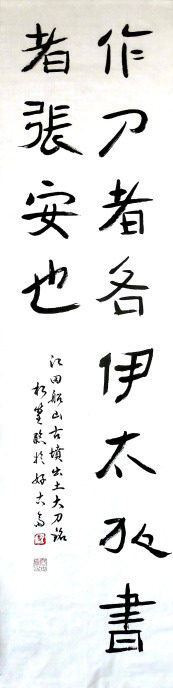 作刀者名伊太加書
者張安也
江田船山古墳出土大刀銘
於好古斋